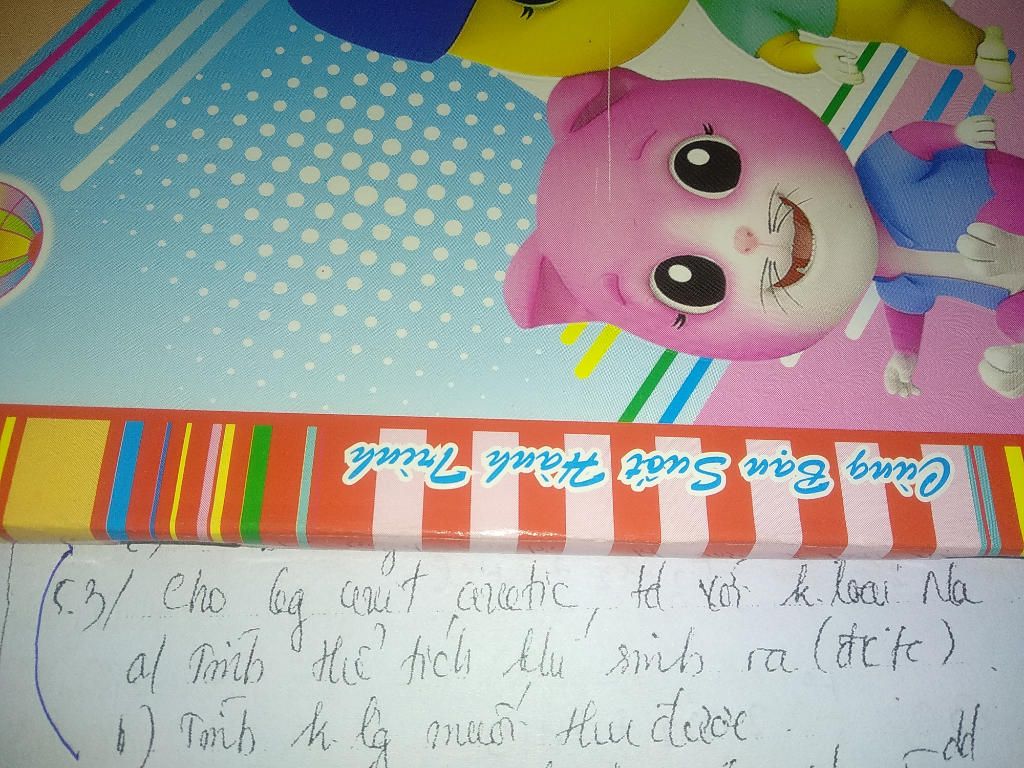 Cùng Bạn Suốt Hành Trình
C.3/ Cho 6g axit axetic, td với k.loại Na
a/ Tính thể tích khí sinh ra (đktc).
b) Tính k.lg muối thu được.
dd